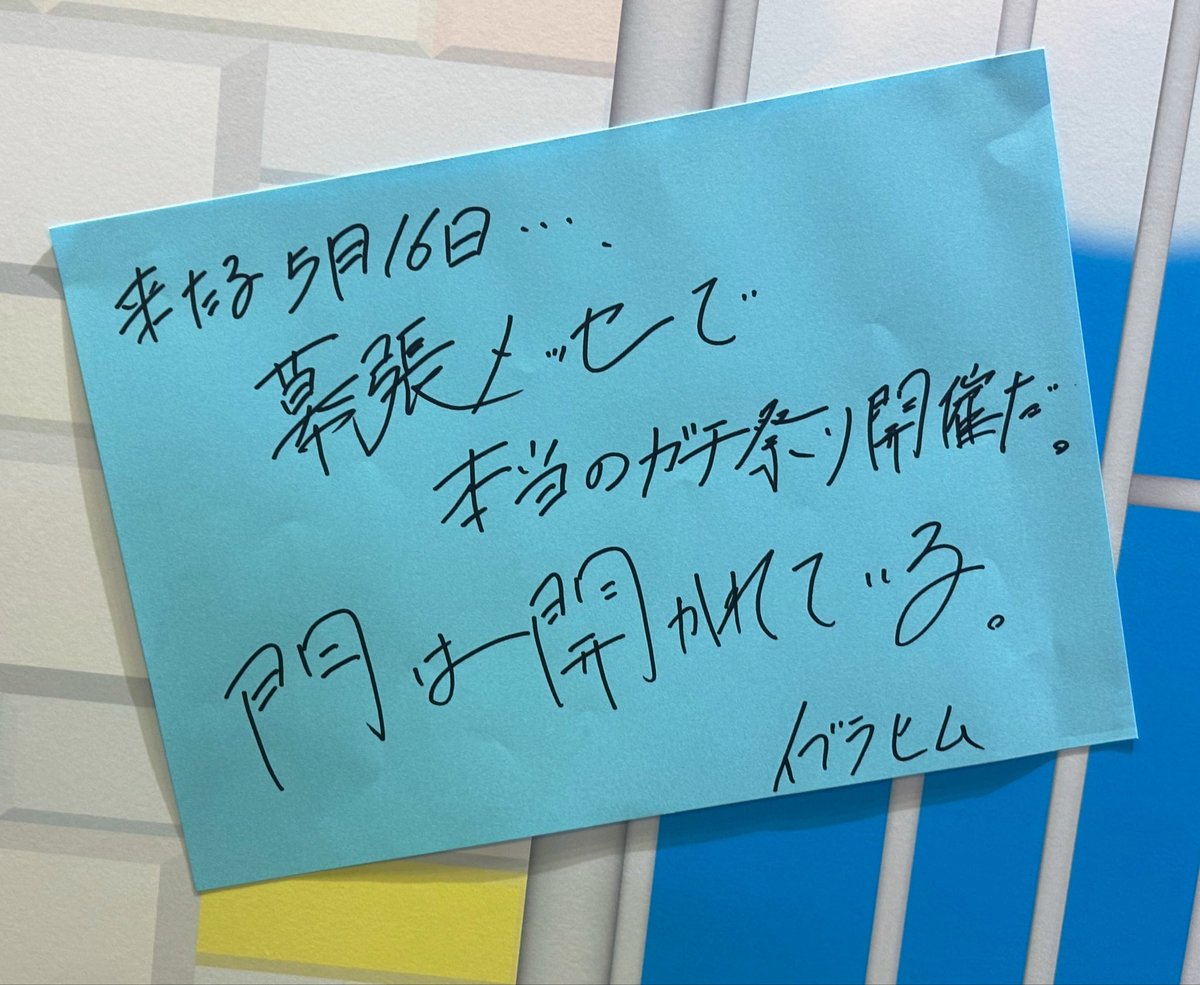 来たる5月16日….
幕張メッセで
本当のガチ祭り開催だ。
門は開かれている。
イブラヒム